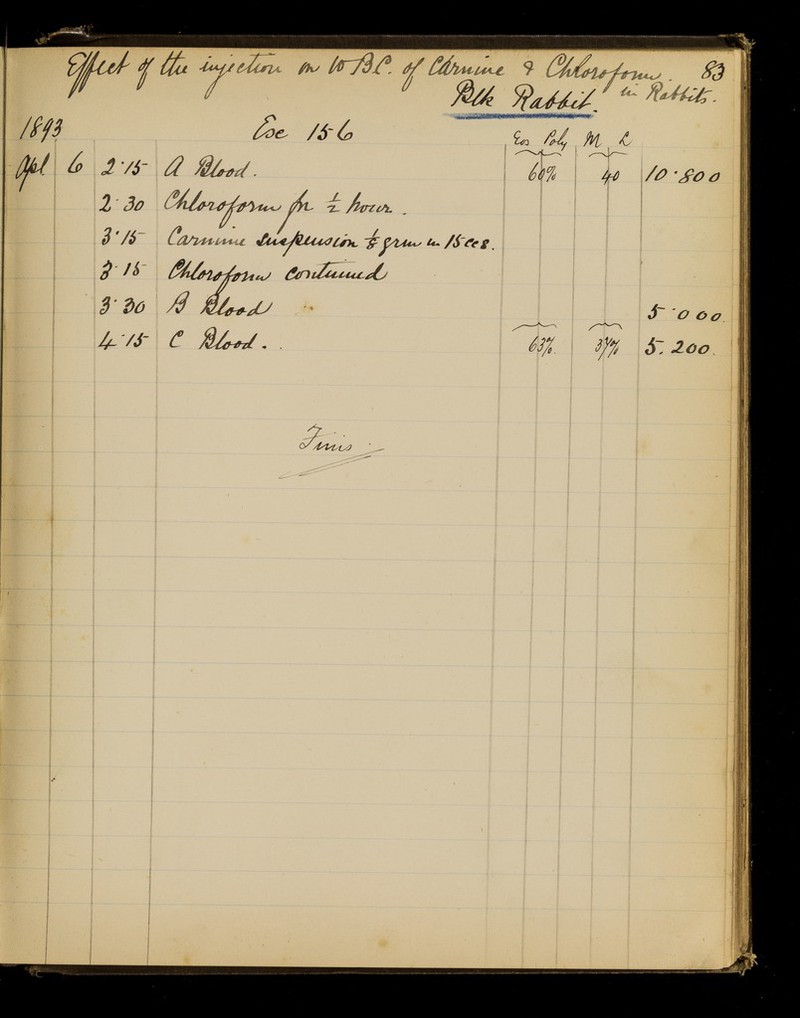 Effect of the injection on W B C. of Carmine & Chloroform. 83
in Rabbits.
Blk Rabbit.
1893 Esc 156 Eos Poly M L
Apl 6 2·15 A Blood. 60% 40 10·800
2·30 Chloroform for ½ hour.
3·15 Carmine Suspension ⅛ grm in 15ccs.
3·15 Chloroform continued
3·30 B Blood 5·000
4·15 C Blood. 63% 37% 5.200
Finis